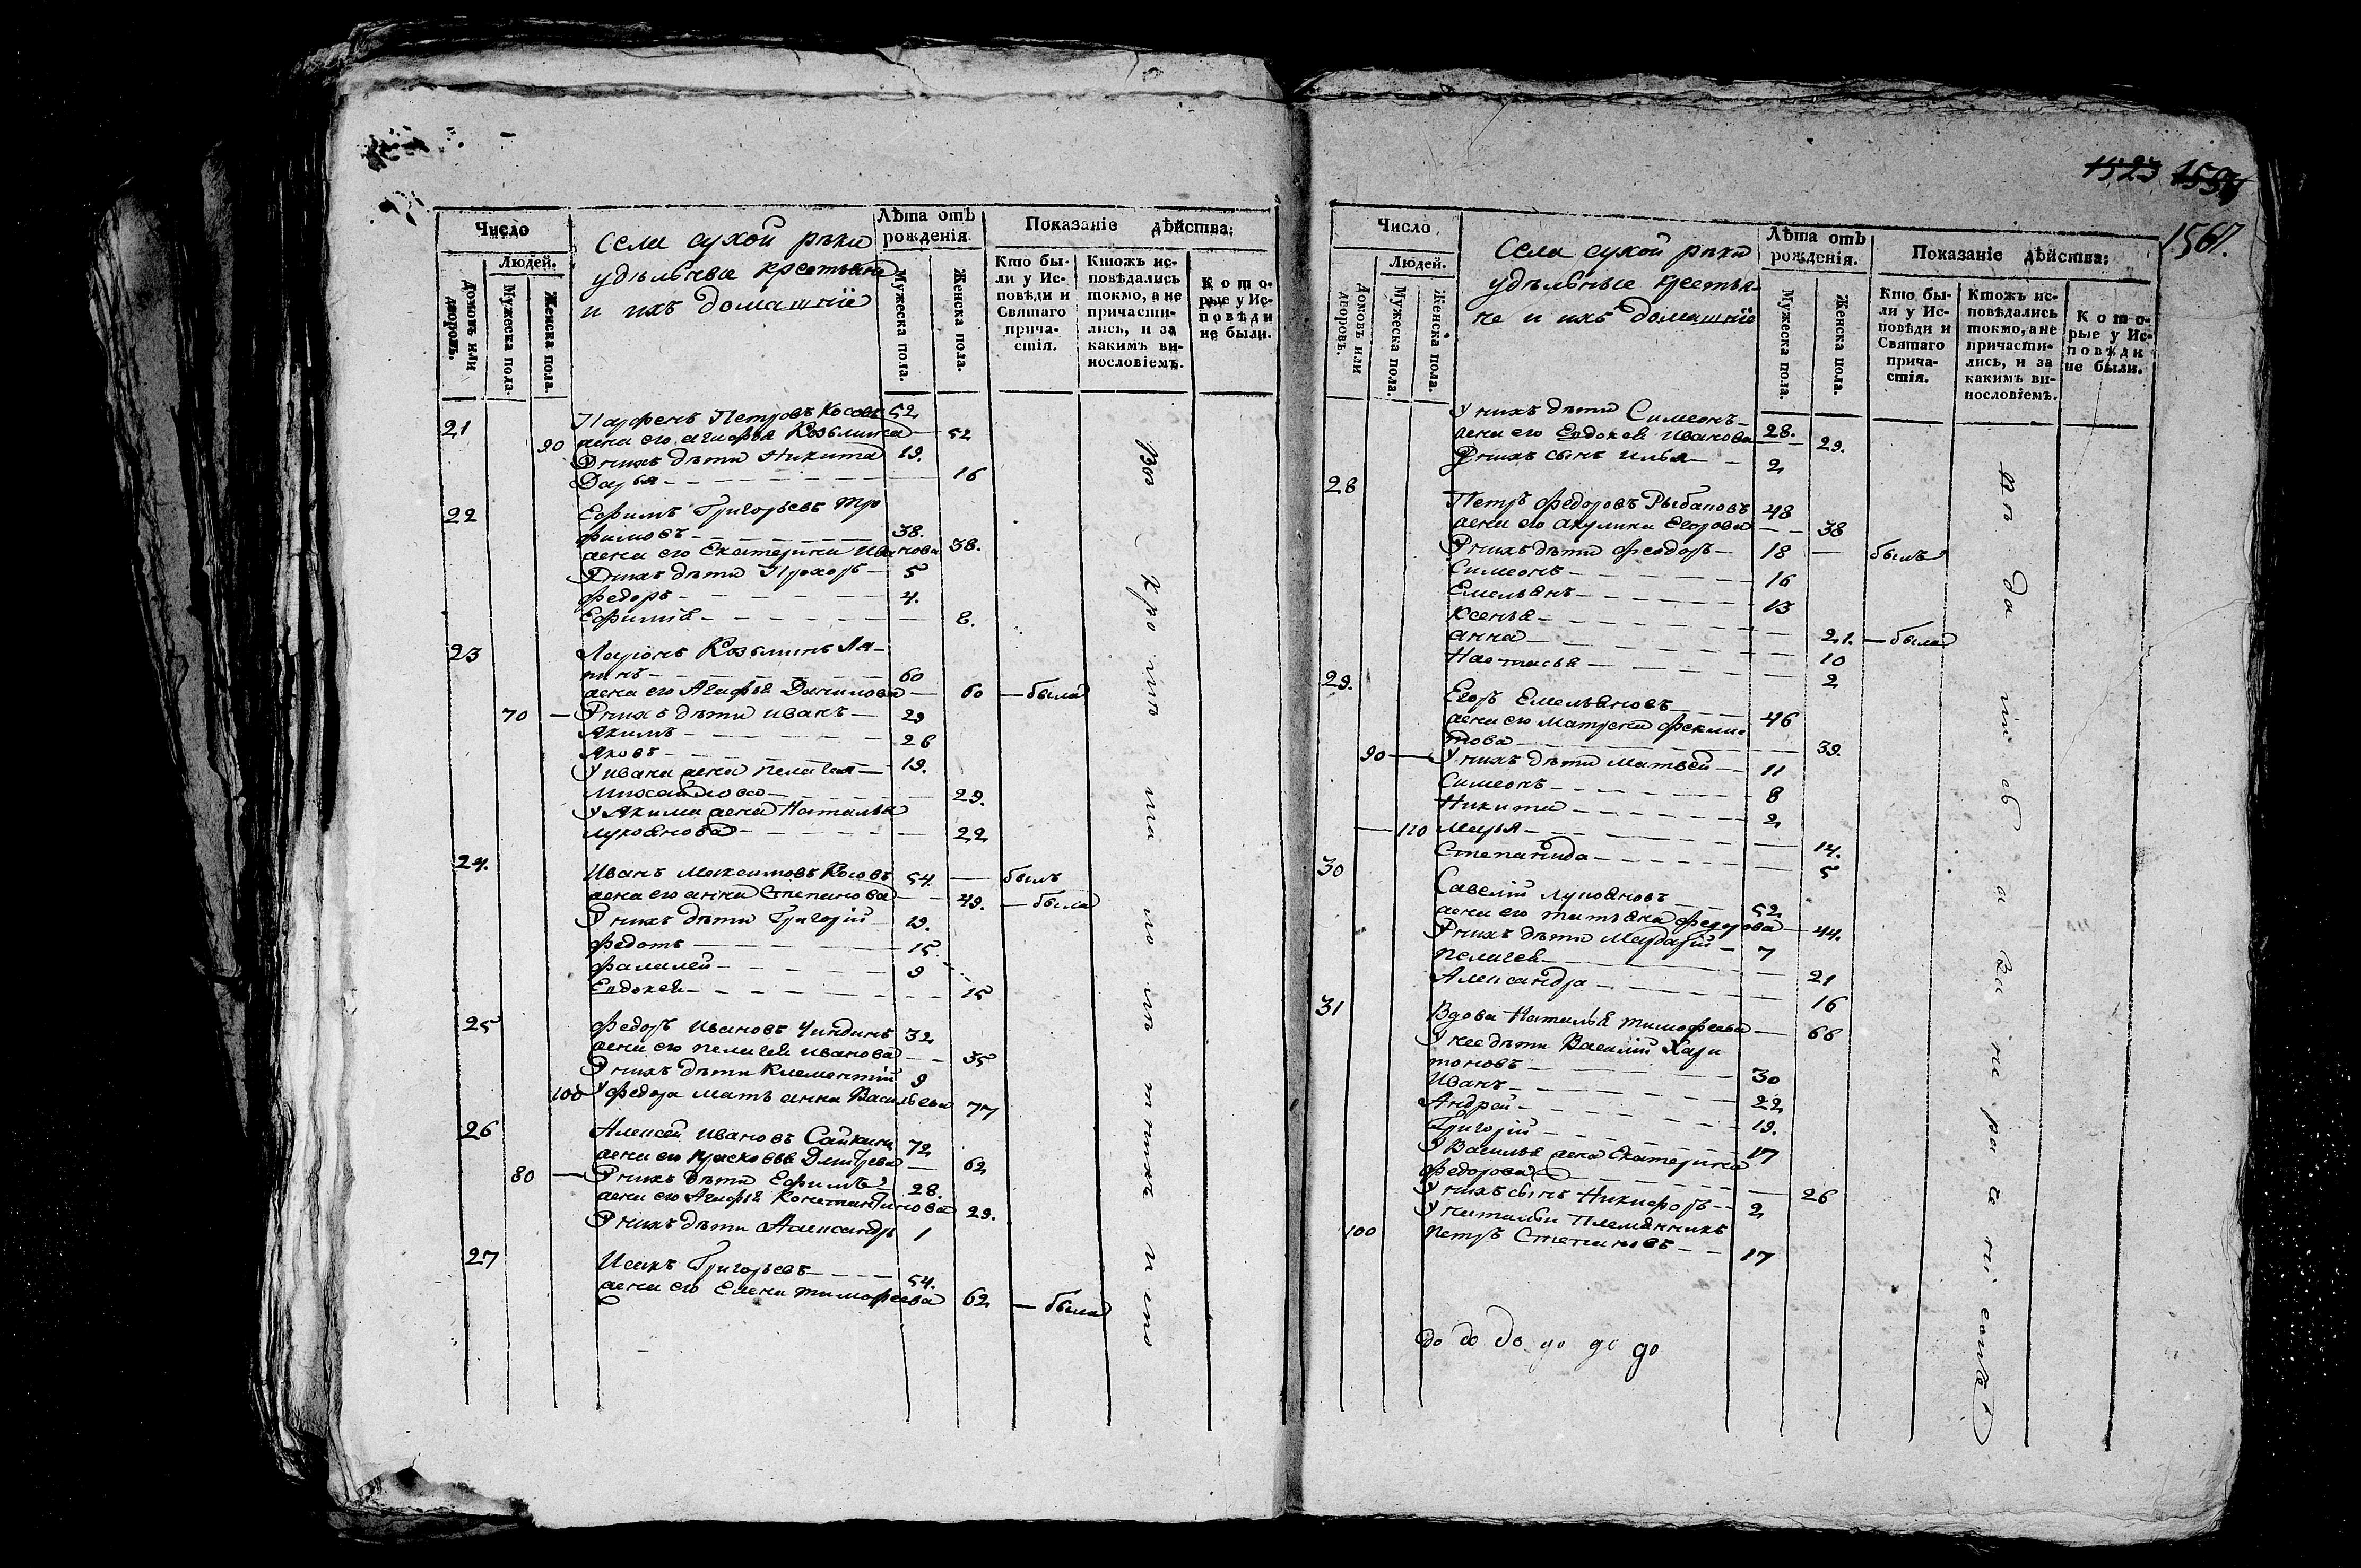 Число
Людей.
Домовъ или дворовъ.
Мужеска пола.
Женска пола.
Села сухой рѣки
удѣльныя крестьяне
и ихъ домашнiе
Лѣта отъ рожденiя.
Мужеска пола.
Женска пола.
Показанiе дѣйства:
Кто бы-
ли у Ис-
повѣди и
Святаго
прича-
стiя.
Ктожъ ис-
повѣдались
токмо, а не
причасти-
лись, и за
какимъ ви-
нословiемъ.
К о т о-
рые у Ис-
п о в ѣ д и
не были.
21 Парфенъ Петровъ Косовъ 52
90 жена его агафья Козьмина — 52
У нихъ дѣти Никита 19.
Дарья — 16
22 Ефимъ Григорьевъ Тро
фимовъ — 38.
жена его Екатерина Иванова 38.
У нихъ дѣти Прохоръ — 5
федоръ — 4.
Ефимiя — 8.
23 Ларiонъ Козьминъ Ла-
пинъ — 60
жена его Агафья Данилова — 60 — была
70 — У нихъ дѣти иванъ — 29
Якимъ — 26
Яковъ — 19.
У ивана жена пелагея —
михайлова — 29.
У Якима жена Наталья
лукоянова — 22
24. Иванъ Максимовъ Косовъ 54. — былъ
жена его анна Степанова — 49. — была
У нихъ дѣти Григорiй 19.
федотъ — 15
фалалей — 9
Евдокея — 15
25 федоръ Ивановъ Чиндинъ 32
жена его пелагея иванова — 35
У нихъ дѣти Климентiй 9
100 У федора мать анна Васильева 77
26 Алексей ивановъ Сайкинъ 72
жена его прасковья Дмитрева — 62
80 — У нихъ дѣти Ефимъ — 28.
жена его Агафья Константинова 29.
У нихъ дѣти Александръ 1
27 Исакъ Григорьевъ — 54.
жена его Елена тимофеева 62 — была
1523
1567.
Число
Людей.
Домовъ или дворовъ.
Мужеска пола.
Женска пола.
Села сухой рѣки
удѣльные крестья-
не и ихъ домашнiе
Лѣта отъ рожденiя.
Мужеска пола.
Женска пола.
Показанiе дѣйства:
Кто бы-
ли у Ис-
повѣди и
Святаго
прича-
стiя.
Ктожъ ис-
повѣдались
токмо, а не
причасти-
лись, и за
какимъ ви-
нословiемъ.
К о т о-
рые у Ис-
п о в ѣ д и
не были.
У нихъ дѣти Симеонъ — 28.
жена его Евдокея иванова — 29.
У нихъ сынъ илья — 2
28 Петръ федоровъ Рыбаковъ 48
жена его акулина Егорова — 38
У нихъ дѣти феодоръ — 18 — былъ
Симеонъ — 16
Емельянъ — 13
ксенья — 21. — была
анна — 10
Настасья — 2
29. Егоръ Емельяновъ — 46
жена его матрена
— 39.
90 — У нихъ дѣти матвей — 11
Симеонъ — 8
Никита — 2
— 110 марья — 14.
Степанида — 5
30 Савелiй лукояновъ — 52
жена его татьяна федорова — 44.
У нихъ дѣти Мардарiй — 7
пелагея — 21
Александра — 16
31 Вдова Наталья тимофеева — 66
У нее дѣти Василiй Хари
тоновъ — 30
Иванъ — 22
Андрей — 19.
Григорiй — 17
У Василья жена Екатерина
федорова — 26
У нихъ сынъ Никифоръ — 2
У натальи племянникъ
100 петръ Степановъ — 17
до до до до до до